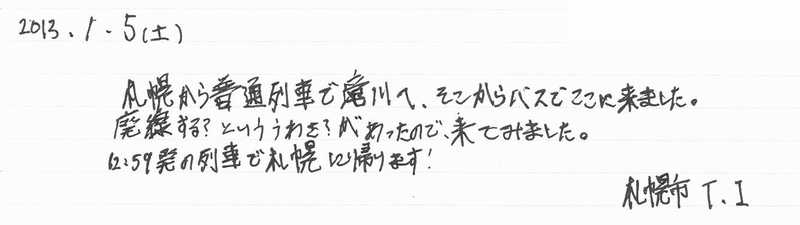 2013.1.5(土)
札幌から普通列車で滝川へ、そこからバスでここに来ました。
廃線する?といううわさ?があったので、来てみました。
12:59発の列車で札幌に帰ります!
札幌市 T.I